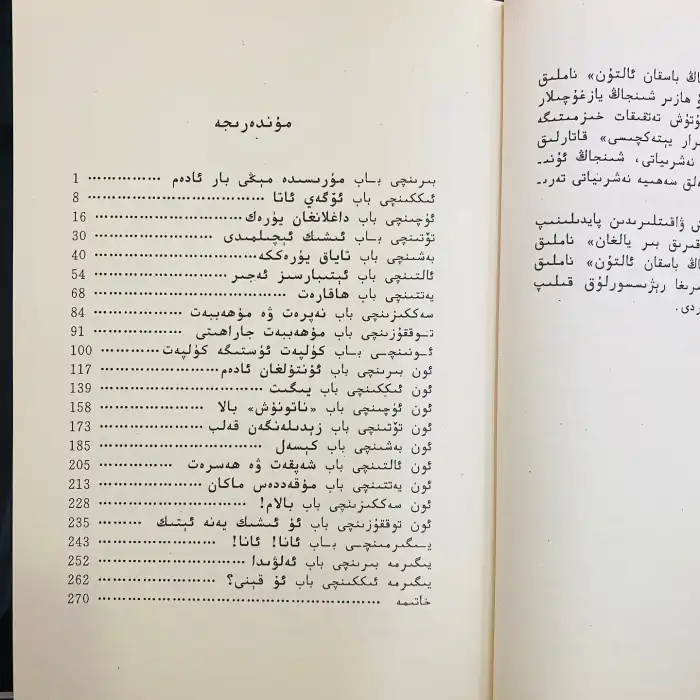 مۇندەرىجە
بىرىنچى باب مۈرىسىدە مېڭى بار ئادەم ............... 1
ئىككىنچى باب ئۆگەي ئاتا ............... 8
ئۈچىنچى باب داغلانغان يۈرەك ............... 16
تۆتىنچى باب ئىشىك ئېچىلمىدى ............... 30
بەشىنچى باب تاياق يۈرەككە ............... 40
ئالتىنچى باب ئېتىبارسىز ئەجىر ............... 54
يەتتىنچى باب ھاقارەت ............... 68
سەككىزىنچى باب نەپرەت ۋە مۇھەببەت ............... 84
توققۇزىنچى باب مۇھەببەت جاراھىتى ............... 91
ئونىنچى باب كۈلپەت ئۈستىگە كۈلپەت ............... 100
ئون بىرىنچى باب ئۇنتۇلغان ئادەم ............... 117
ئون ئىككىنچى باب يىگىت ............... 139
ئون ئۈچىنچى باب «ناتونۇش» بالا ............... 158
ئون تۆتىنچى باب زېدىلەنگەن قەلب ............... 173
ئون بەشىنچى باب كېسەل ............... 185
ئون ئالتىنچى باب شەپقەت ۋە ھەسرەت ............... 205
ئون يەتتىنچى باب مۇقەددەس ماكان ............... 213
ئون سەككىزىنچى باب بالام! ............... 228
ئون توققۇزىنچى باب ئۇ ئىشىك يەنە ئېتىك ............... 235
يىگىرمىنچى باب ئانا! ئانا! ............... 243
يىگىرمە بىرىنچى باب ئەلۋىدا ............... 252
يىگىرمە ئىككىنچى باب ئۇ قېنى؟ ............... 262
خاتىمە ............... 270
باسقان ئالتۇن» ناملىق
ھازىر شىنجاڭ يازغۇچىلار
تەتقىقات خىزمىتىگە
يېتەكچىسى» قاتارلىق
نەشرىياتى، شىنجاڭ ئۇنـ
سەھىيە نەشرىياتى تەرىـ
ۋاقىتلىرىدىن پايدىلىنىپ
قىرىق بىر يالغان» ناملىق
باسقان ئالتۇن» ناملىق
رېژىسسورلۇق قىلىپ